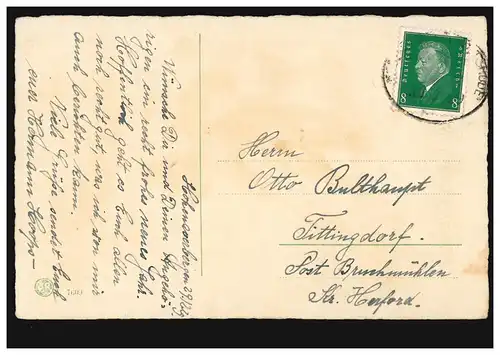 Wünsche Dir und Deinen Angehö-
rigen ein recht frohes neues Jahr.
Hoffentlich geht es Euch allen
noch recht gut, was ich von mir
auch berichten kann.
Viele Grüße sendet Euch
euer Hermann
Deutsches Reich
8 8
Herrn
Otto Bulthaupt
Tittingdorf.
Post Bruchmühlen
Kr. Herford.